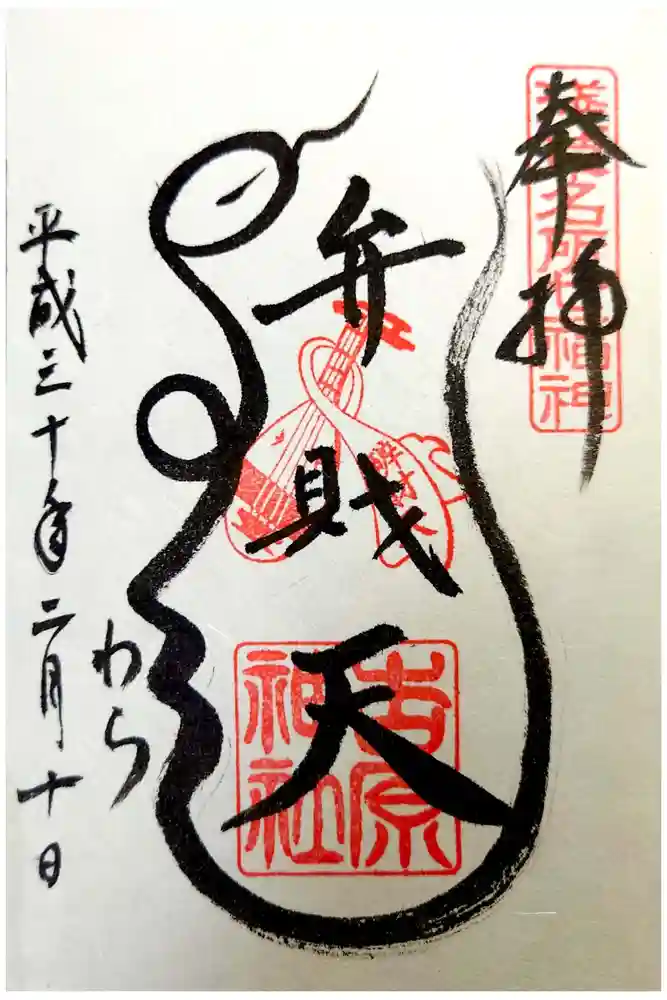 奉拝
名所七福神
弁財天
吉原神社
わら
平成三十年二月十日